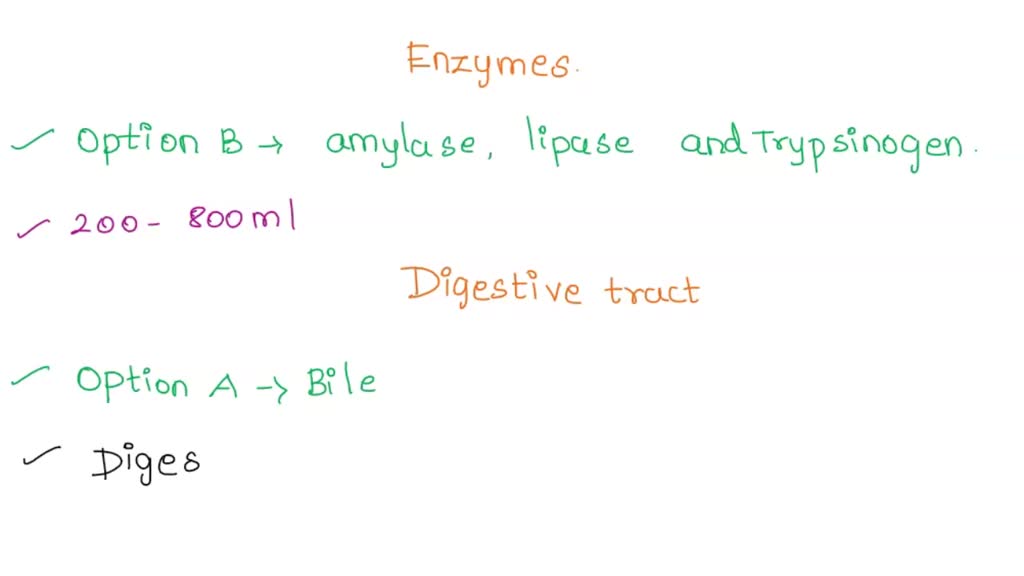 Enzymes.
Option B → amylase, lipase and Trypsinogen.
200 - 800ml
Digestive tract
Option A → Bile
Diges